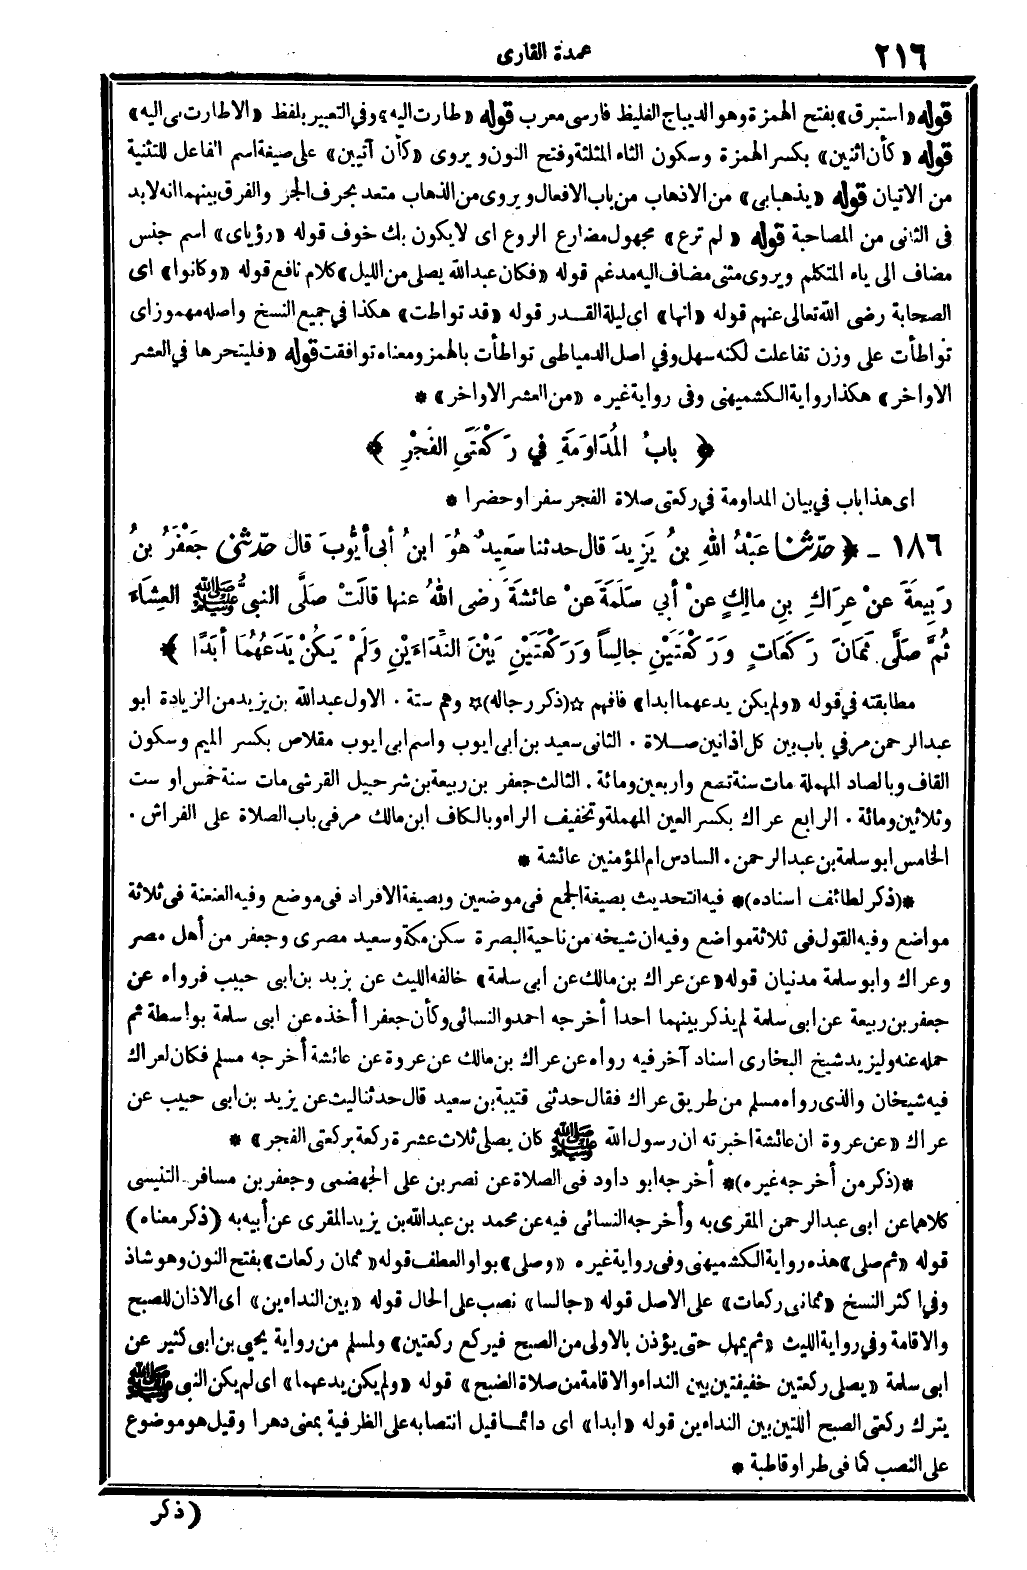 ٢١٦
عمدة القارى
قوله «استبرق» بفتح الهمزة وهو الديباج الغليظ فارسى معرب قوله «طارت اليه» وفي التعبير بلفظ «الا طارت بى اليه»
قوله «كأن اثنين» بكسر الهمزة وسكون الثاء المثلثة وفتح النون ويروى «كأن آتيين» على صيغة اسم الفاعل للتثنية
من الاتيان قوله «يذهبا بى» من الاذهاب من باب الافعال ويروى من الذهاب متعد بحرف الجر والفرق بينهما انه لا بد
فى الثانى من المصاحبة قوله «لم ترع» مجهول مضارع الروع اى لا يكون بك خوف قوله «رؤياى» اسم جنس
مضاف الى ياء المتكلم ويروى مثنى مضاف اليه مدغم قوله «فكان عبد الله يصلى من الليل» كلام نافع قوله «وكانوا» اى
الصحابة رضى الله تعالى عنهم قوله «انها» اى ليلة القدر قوله «قد تواطت» هكذا في جميع النسخ واصله مهموز اى
تواطأت على وزن تفاعلت لكنه سهل وفي اصل الدمياطى تواطأت بالهمز ومعناه توافقت قوله «فليتحرها في العشر
الاواخر» هكذا رواية الكشميهنى وفى رواية غيره «من العشر الاواخر» *
﴿ بابُ المُدَاوَمَةِ في رَكْعَتَيِ الفَجْرِ ﴾
اى هذا باب في بيان المداومة في ركعتى صلاة الفجر سفرا وحضرا *
١٨٦ - ﴿ حدّثنا عَبْدُ اللهِ بنُ يَزِيدَ قال حدثنا سَعِيدٌ هُوَ ابنُ أبى أيُّوبَ قال حدّثنى جَعْفَرُ بنُ
رَبِيعَةَ عَنْ عِرَاكِ بنِ مالِكٍ عَنْ أبي سَلَمَةَ عَنْ عائشَةَ رضى اللهُ عنها قالَتْ صَلَّى النبىُّ ﷺ العِشَاءَ
ثُمَّ صَلَّى ثَمَانَ رَكَعَاتٍ وَرَكْعَتَيْنِ جالِساً وَرَكْعَتَيْنِ بَيْنَ النِّدَاءَيْنِ وَلَمْ يَكُنْ يَدَعُهُمَا أبَدًا ﴾
مطابقته في قوله «ولم يكن يدعهما ابدا» فافهم ☆(ذكر رجاله)☆ وهم ستة . الاول عبد الله بن يزيد من الزيادة ابو
عبد الرحمن مر في باب بين كل اذانين صلاة . الثانى سعيد بن ابى ايوب واسم ابى ايوب مقلاص بكسر الميم وسكون
القاف وبالصاد المهملة مات سنة تسع واربعين ومائة . الثالث جعفر بن ربيعة بن شرحبيل القرشى مات سنة خمس او ست
وثلاثين ومائة . الرابع عراك بكسر العين المهملة وتخفيف الراء وبالكاف ابن مالك مر فى باب الصلاة على الفراش .
الخامس ابو سلمة بن عبد الرحمن . السادس ام المؤمنين عائشة *
*(ذكر لطائف اسناده)* فيه التحديث بصيغة الجمع فى موضعين وبصيغة الافراد فى موضع وفيه العنعنة فى ثلاثة
مواضع وفيه القول فى ثلاثة مواضع وفيه ان شيخه من ناحية البصرة سكن مكة وسعيد مصرى وجعفر من أهل مصر
وعراك وابو سلمة مدنيان قوله «عن عراك بن مالك عن ابى سلمة» خالفه الليث عن يزيد بن ابى حبيب فرواه عن
جعفر بن ربيعة عن ابى سلمة لم يذكر بينهما احدا أخرجه احمد والنسائى وكأن جعفرا أخذه عن ابى سلمة بواسطة ثم
حمله عنه وليزيد شيخ البخارى اسناد آخر فيه رواه عن عراك بن مالك عن عروة عن عائشة أخرجه مسلم فكان لعراك
فيه شيخان والذى رواه مسلم من طريق عراك فقال حدثنى قتيبة بن سعيد قال حدثنا ليث عن يزيد بن ابى حبيب عن
عراك «عن عروة ان عائشة اخبرته ان رسول الله ﷺ كان يصلى ثلاث عشرة ركعة بركعتى الفجر» *
*(ذكر من أخرجه غيره)* أخرجه ابو داود فى الصلاة عن نصر بن على الجهضمى وجعفر بن مسافر التنيسى
كلاهما عن ابى عبد الرحمن المقرى به وأخرجه النسائى فيه عن محمد بن عبد الله بن يزيد المقرى عن أبيه به (ذكر معناه)
قوله «ثم صلى» هذه رواية الكشميهنى وفى رواية غيره «وصلى» بواو العطف قوله «ثمان ركعات» بفتح النون وهو شاذ
وفى اكثر النسخ «ثمانى ركعات» على الاصل قوله «جالسا» نصب على الحال قوله «بين النداءين» اى الاذان للصبح
والاقامة وفي رواية الليث «ثم يمهل حتى يؤذن بالاولى من الصبح فيركع ركعتين» ولمسلم من رواية يحيى بن ابى كثير عن
ابى سلمة «يصلى ركعتين خفيفتين بين النداء والاقامة من صلاة الصبح» قوله «ولم يكن يدعهما» اى لم يكن النبى ﷺ
يترك ركعتى الصبح اللتين بين النداءين قوله «ابدا» اى دائما قيل انتصابه على الظرفية بمعنى دهرا وقيل هو موضوع
على النصب كما فى طرا وقاطبة *
(ذكر